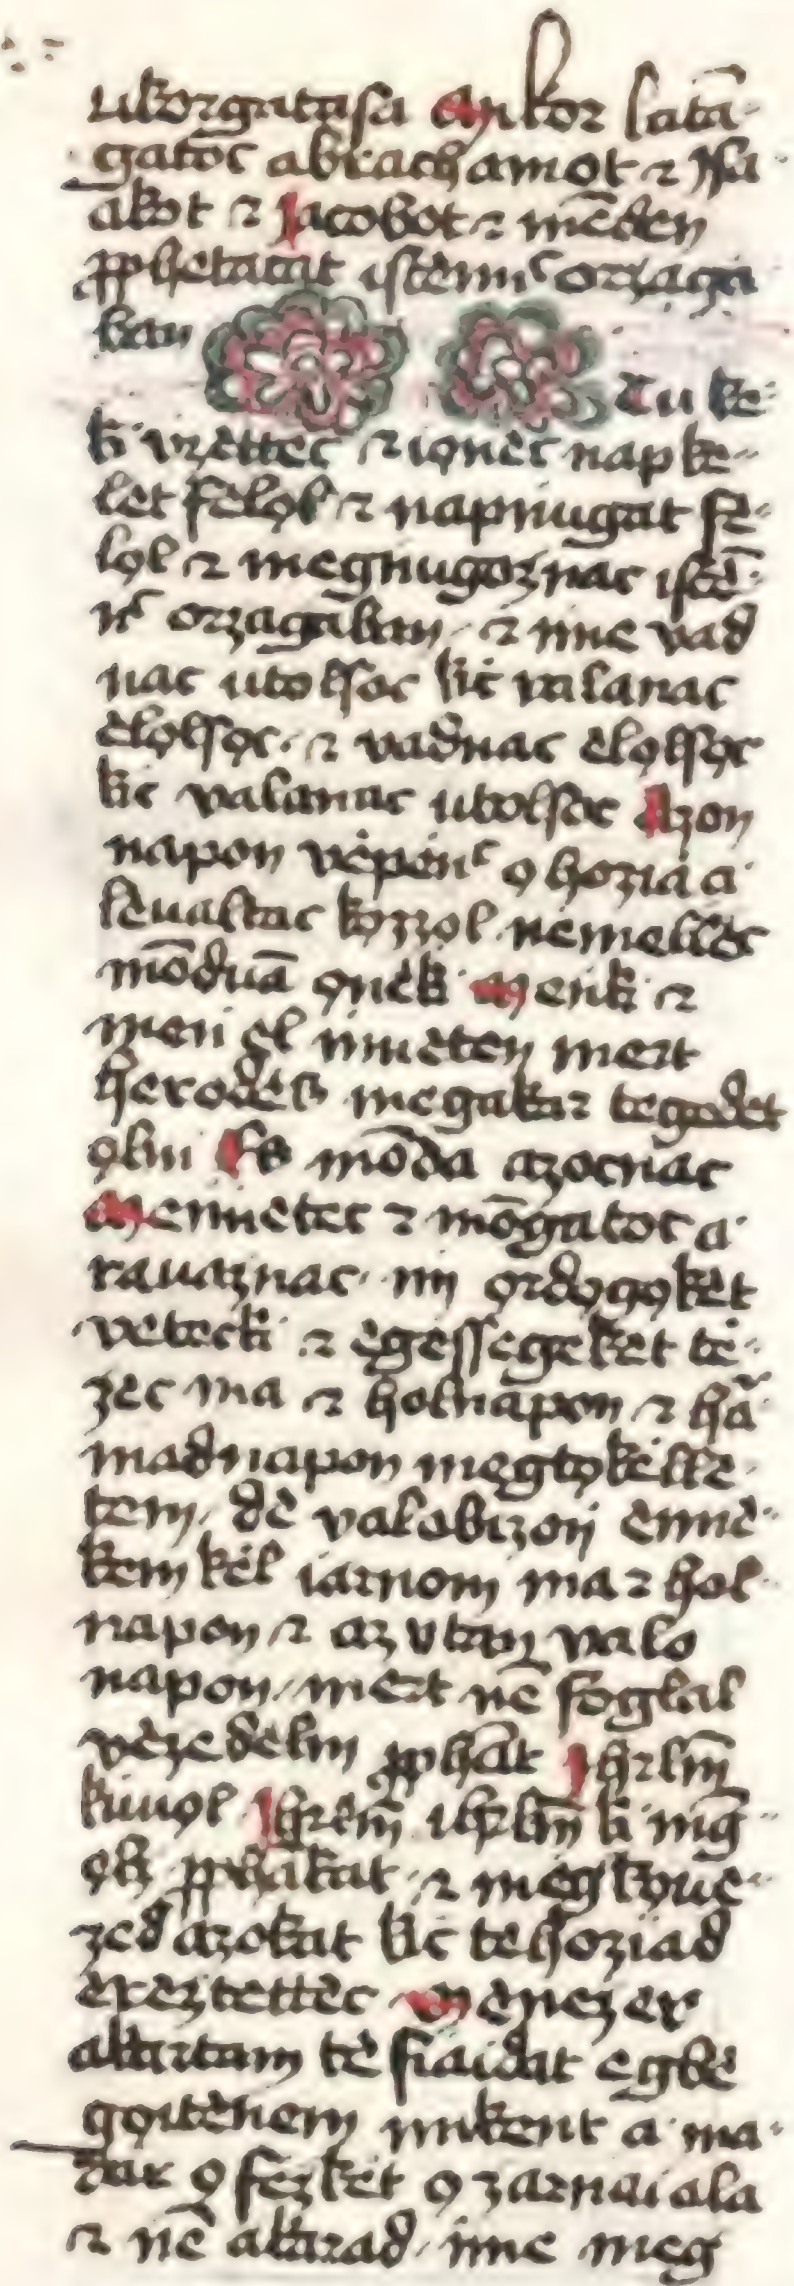 vikorgatasa Mikor latā-
gatoc abrachamot ⁊ Isa-
akot ⁊ Jacobot ⁊ mēden
ꝓphetacat istenn̄c orzaga
ban
Eu ke-
ki vzèttèc ⁊ iọnèc nap ke-
let fèlọl ⁊ napńugat fè-
lọl ⁊ megńugoznac istē-
nc̄ orzagaban ⁊ ime vad
nac utolsoc kic valanac
èlọlsọc ⁊ vadnac èlọlsọc
kic valanac utolsoc Azon
napon vèpèn̄c ọ hoziaia
lèualtac kọzzọl nèmellèc
mōduā ọnèki Mèńki ⁊
meń èl inneten mert
herodès megakar tegọdèt
ọlni És mōda azocnac
Mèńńètec ⁊ mōgatoc a
rauaznac ím ọrdọgọkèt
vètecki ⁊ egèssegeket tè-
zec ma ⁊ holnapon ⁊ ha-
madnapon megtọkèllè-
tem dè valobizoń ènnè-
kem kèl iarnom ma ⁊ hol-
napon ⁊ az vtan valo
napon mert nē foglal
vèzèdèlm ꝓphāt Ihrlm̄
kiuọl Ihrlm̄ ihrlm̄ ki mḡ
ọlọd ꝓphākat ⁊ mègkọuè-
zed azokat kic tèhoziad
èrèztèttèc Mèńezèr
akartam tè fiaidat egbè
gọitènem mikent a ma-
dar ọ fèzkèt ọ zarńai ala
⁊ nē akarad ime meg